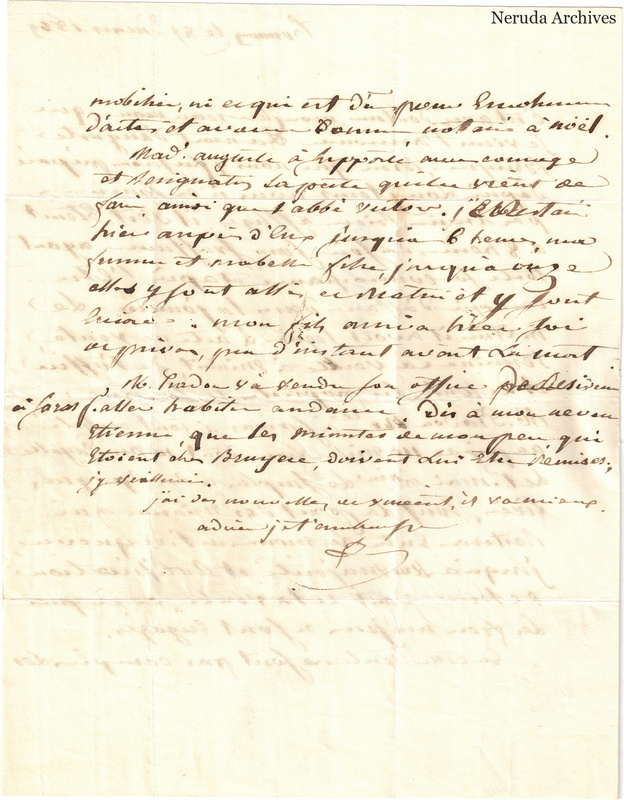 Neruda Archives
mobilier, ni ce qui est dû pour
d'actes et avance Comm notarié à noël.
Mad. auguste à supporté avec courage
et resignation la perte qu'elle vient de
faire ainsi que l'abbé victor. j'étais
hier auprès d'eux jusqu'à 6 heures, ma
femme et ma belle fille, jusqu'à onze
elles y sont allé ce matin et y sont
encore. mon fils arriva hier soir
de privas, peu d'instant avant la mort
M. va vendre son office
à Saras p. aller habiter andance. Dis à mon neveu
etienne, que les minutes de mon pere, qui
étoient chez Bruyere, doivent lui être remises,
j'y veillerai.
j'ai des nouvelles de vincent, il va mieux.
adieu je t'embrasse